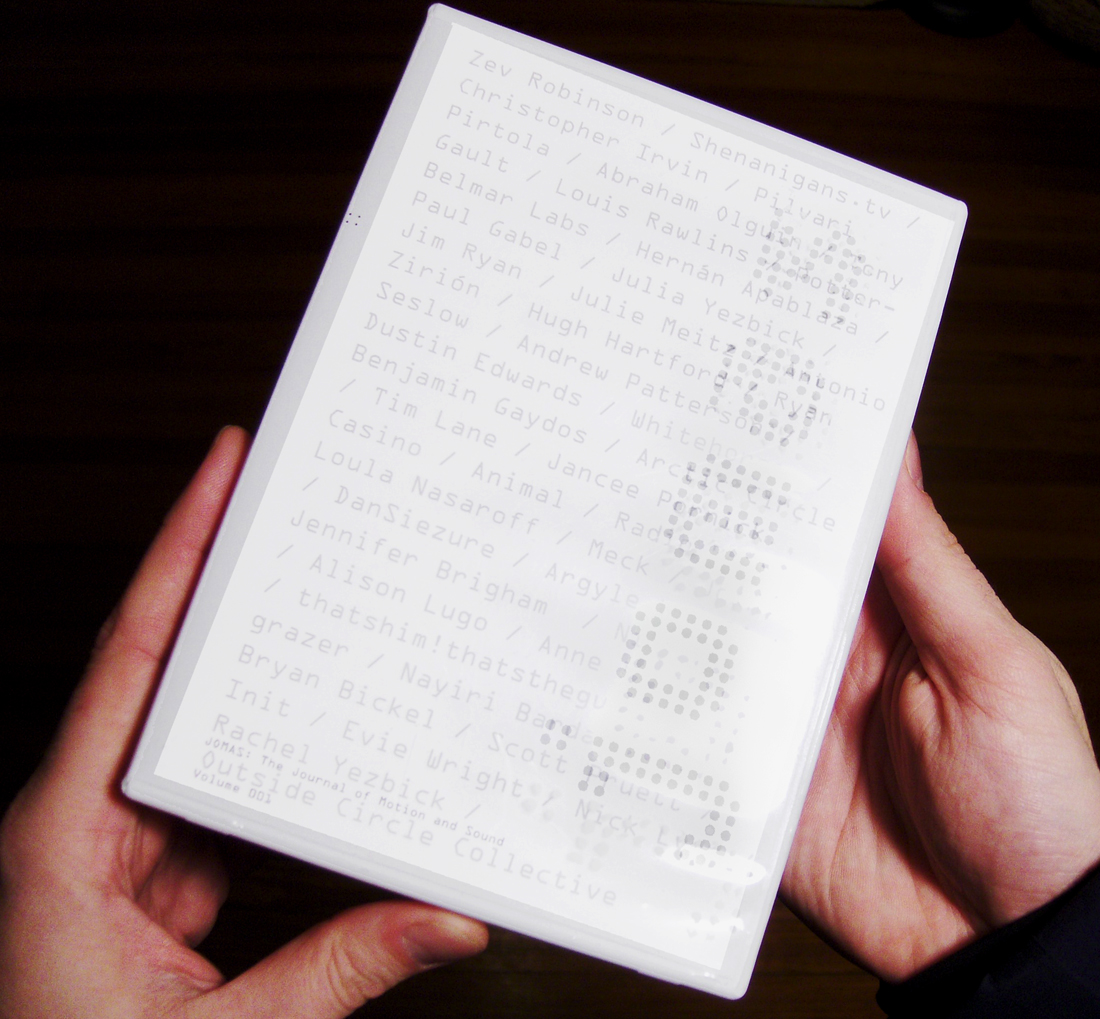 Zev Robinson / Shenanigans.tv /
Christopher Irvin / Pilvari
Pirtola / Abraham Olguin / Tony
Gault / Louis Rawlins / Potter-
Belmar Labs / Hernán Apablaza /
Paul Gabel / Julia Yezbick /
Jim Ryan / Julie Meitz / Antonio
Zirión / Hugh Hartford / Ryan
Seslow / Andrew Patterson /
Dustin Edwards /
Benjamin Gaydos / Arctic Circle
/ Tim Lane / Jancee
Casino / Animal /
Loula Nasaroff / Meck /
/ DanSiezure / Argyle
Jennifer Brigham /
/ Alison Lugo / Anne
/ thatshim!thatstheguy
grazer / Nayiri
Bryan Bickel / Scott
Init / Evie Wright / Nick
Rachel Yezbick /
Outside Circle Collective
JOMAS: The Journal of Motion and Sound
Volume 001